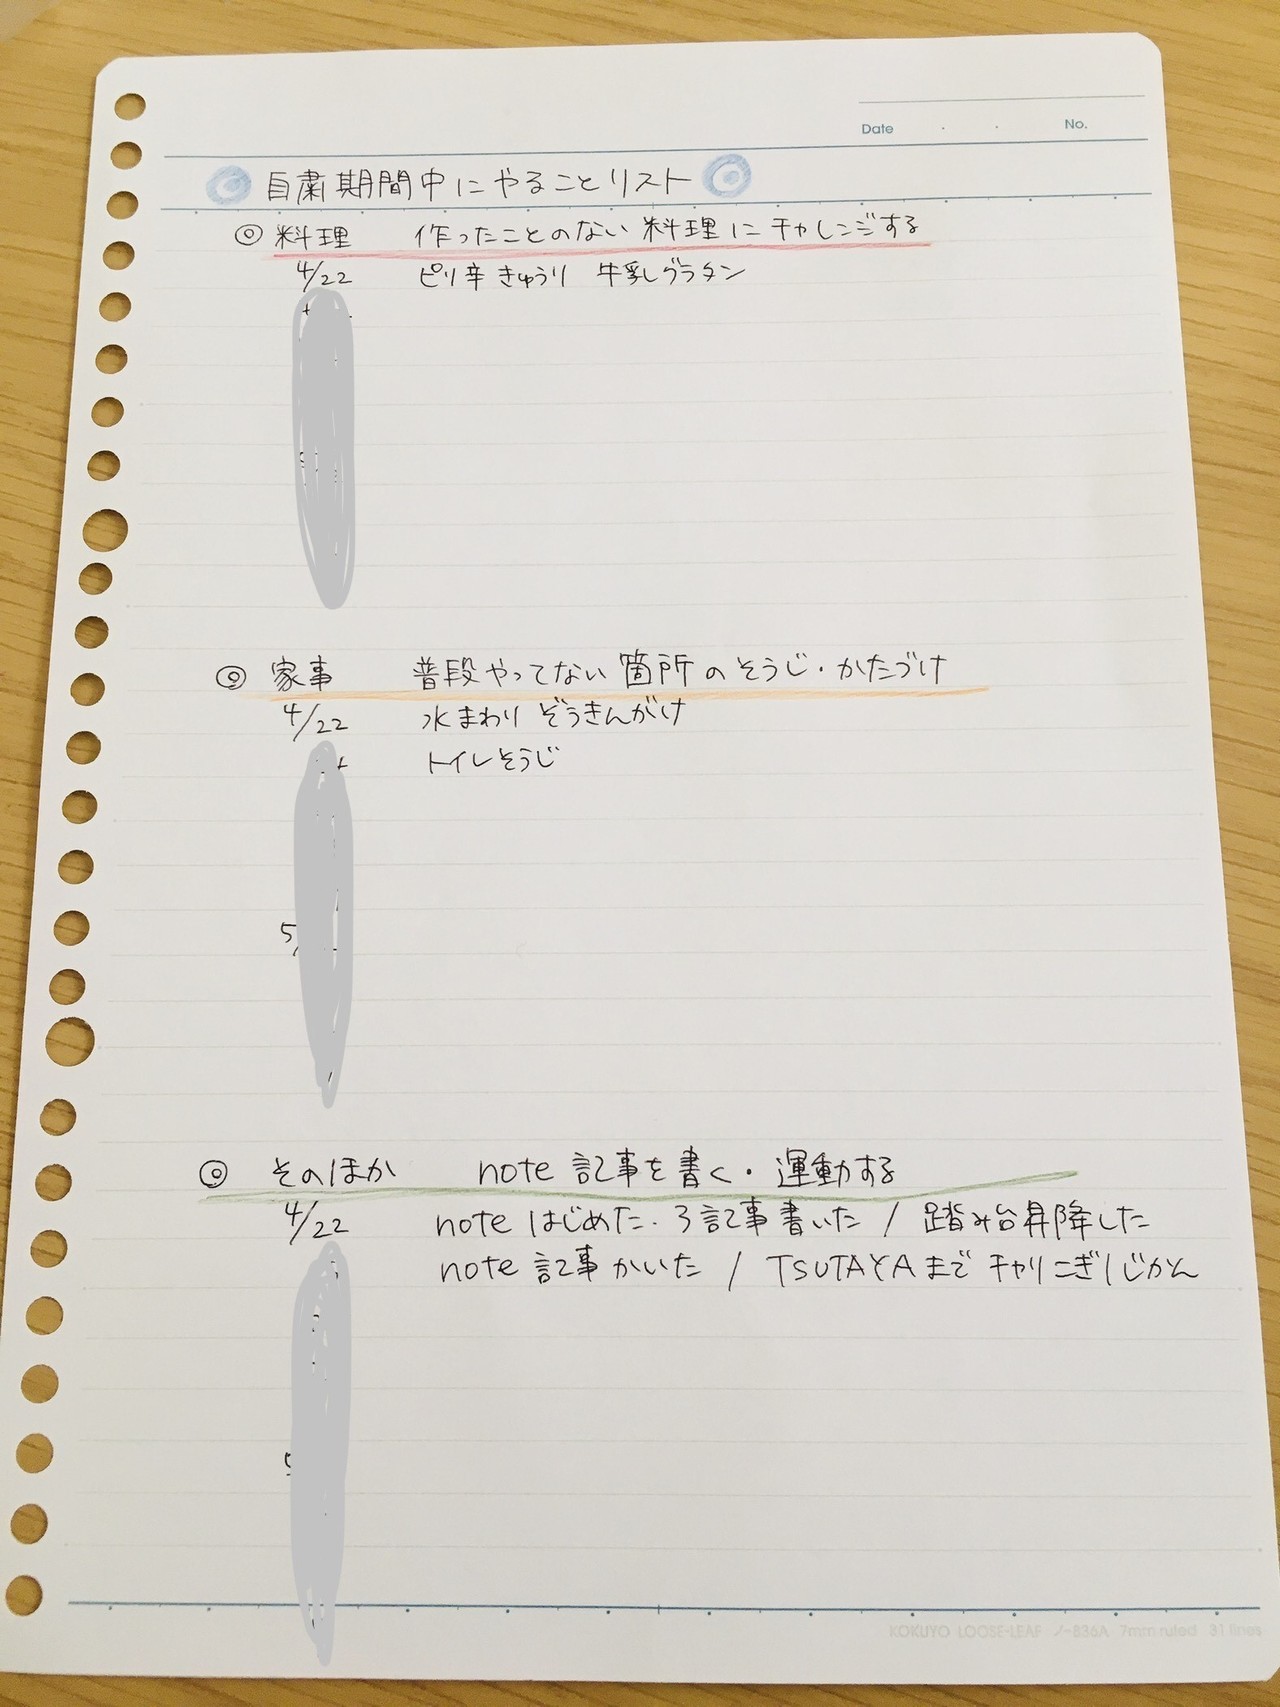 Date ・ ・ No.
◎ 自粛期間中にやることリスト ◎
◎ 料理 作ったことのない料理にチャレンジする
4/22 ピリ辛きゅうり 牛乳グラタン
◎ 家事 普段やってない箇所のそうじ・かたづけ
4/22 水まわりぞうきんがけ
トイレそうじ
5/
◎ そのほか note 記事を書く・運動する
4/22 note はじめた・3記事書いた / 踏み台昇降した
note 記事かいた / TSUTAYAまでチャリこぎ1じかん
5
KOKUYO LOOSE-LEAF ノ-836A 7mm ruled 31 lines